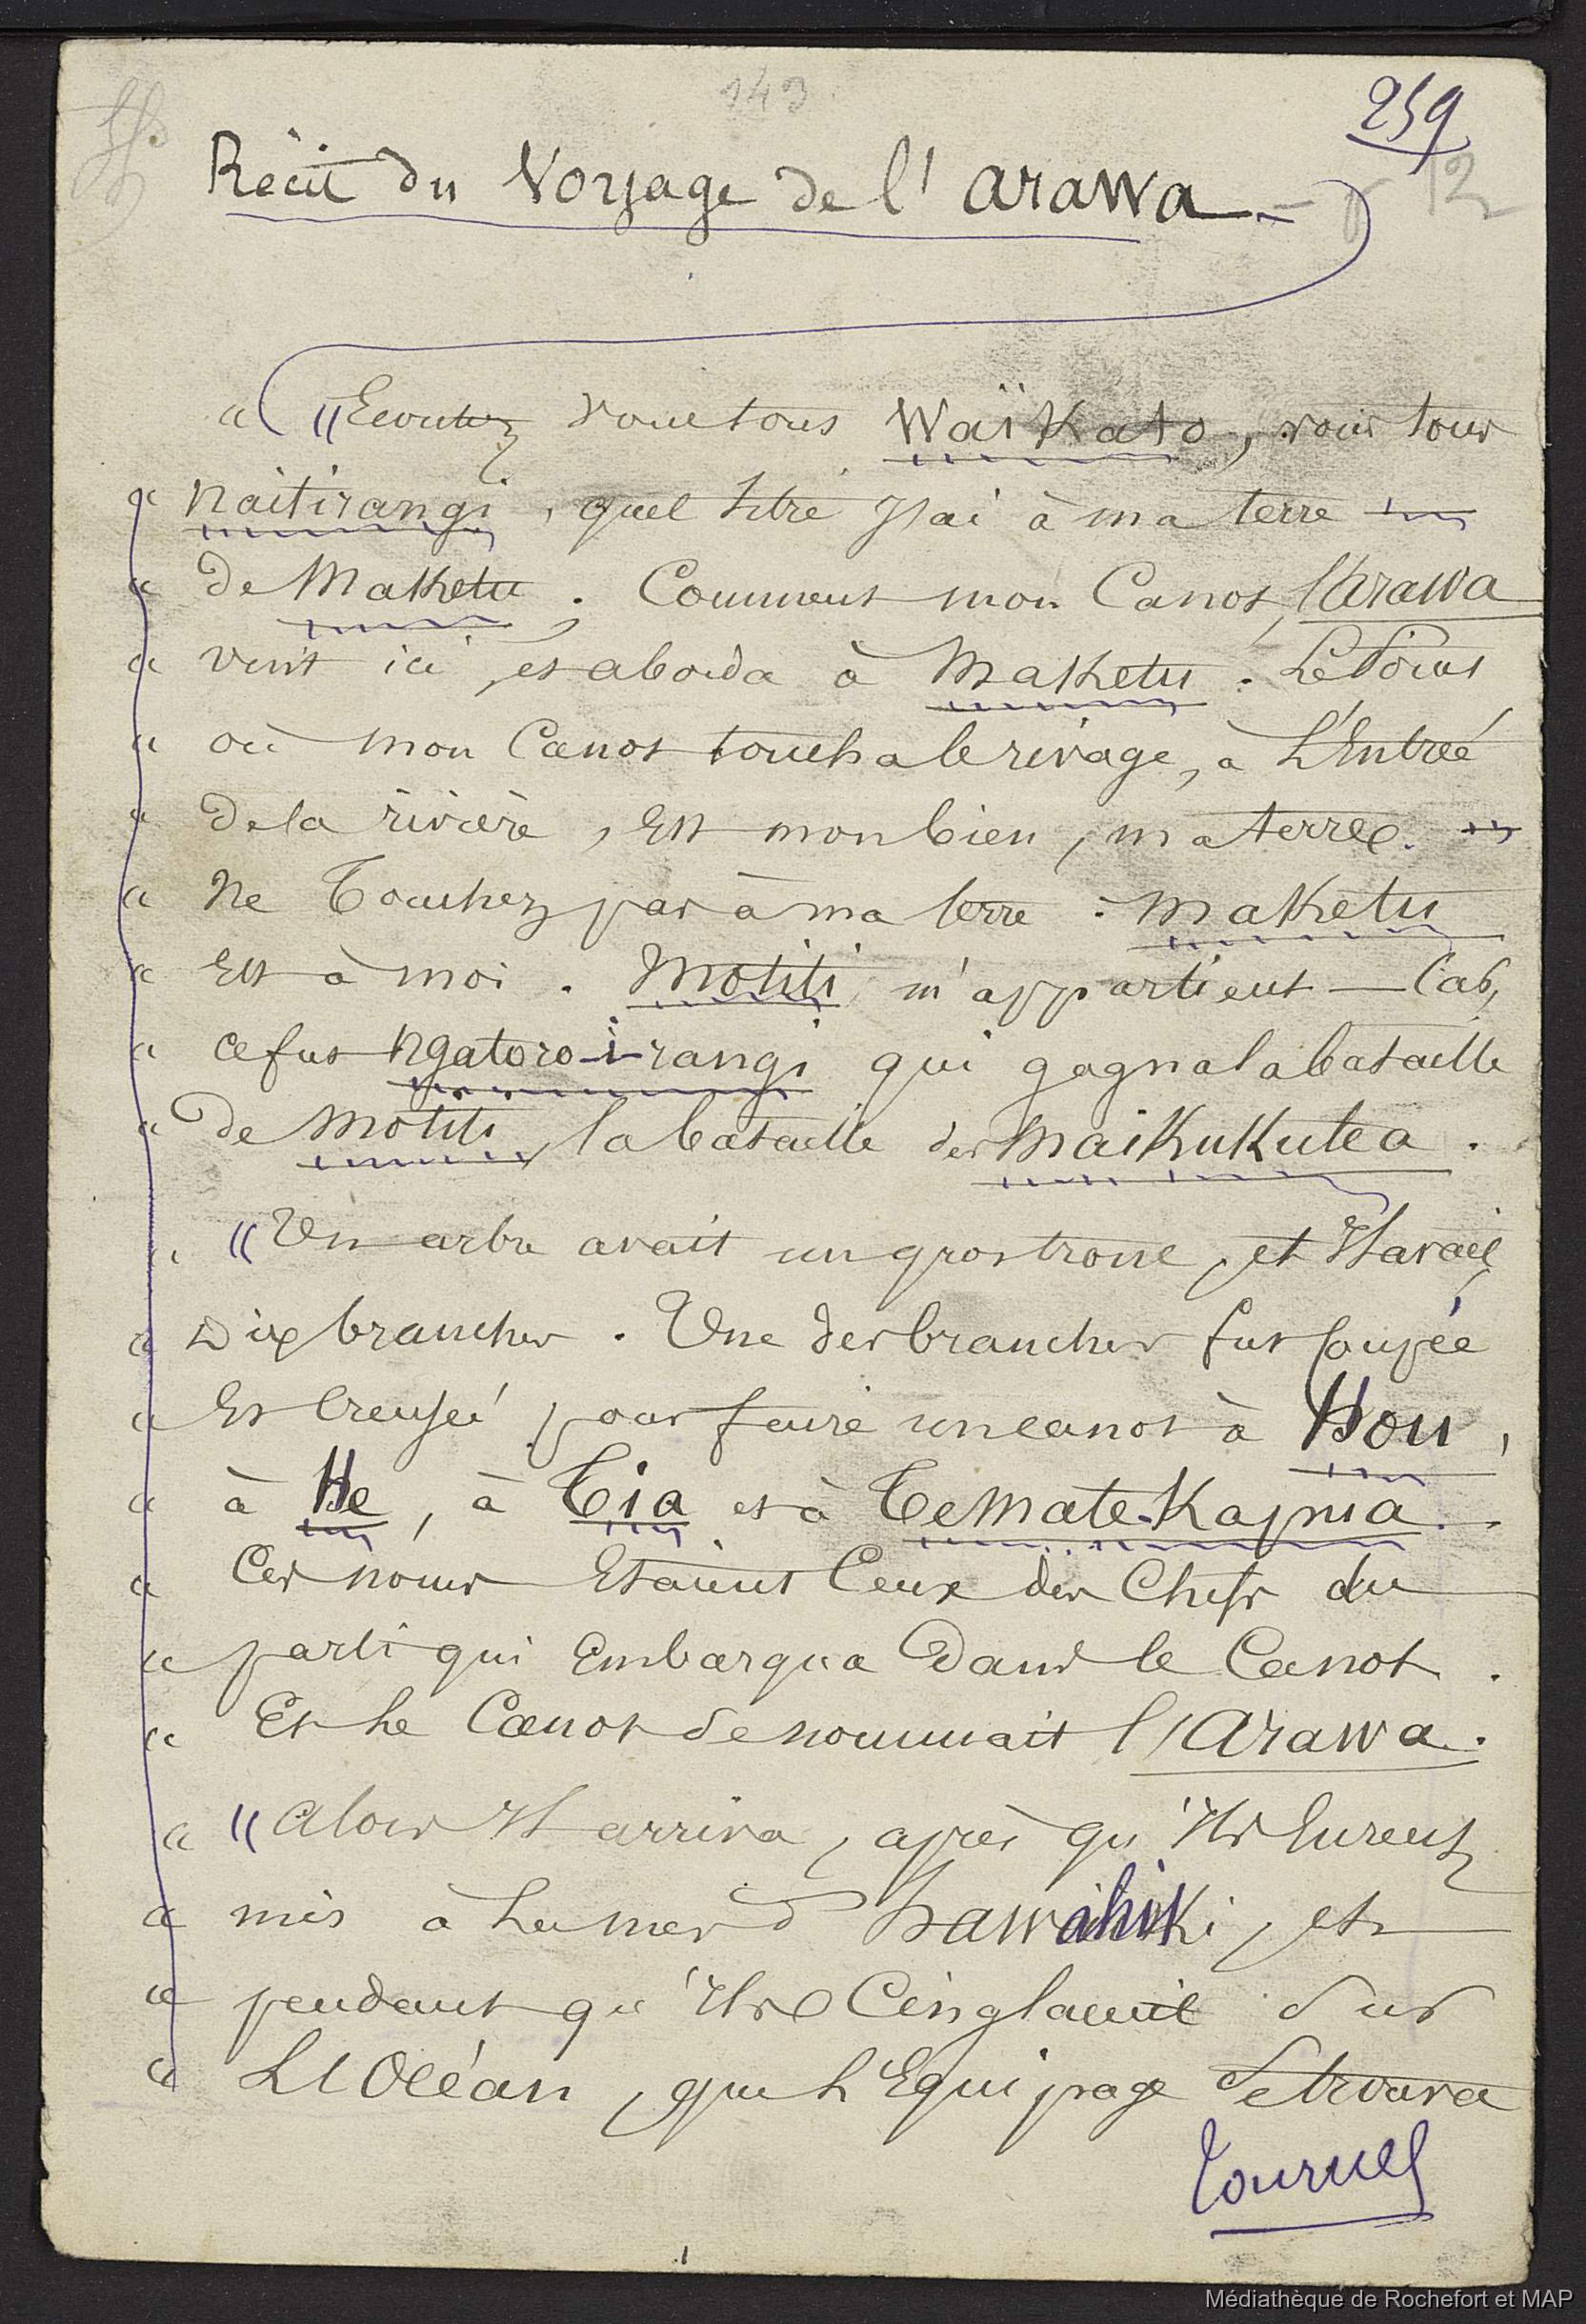 143
259
12
Récit du Voyage de l'Arawa
« " Ecoutez vous tous Waïkato, vous tous
« Naitirangi, quel titre j'ai à ma terre
« de Maketu. Comment mon Canot, l'Arawa
« vint ici, et aborda à Maketu. Le Point
« où mon Canot toucha le rivage, à L'Entrée
« de la rivière, Est mon bien, ma terre.
« Ne Touchez pas à ma terre : Maketu
« Est à moi. Motiti m'appartient — Car,
« ce fut Ngatoro-i-rangi qui gagna la bataille
« de Motiti, la bataille des Maikukutea.
« " Un arbre avait un gros tronc, et Il avait
« Dix branches. Une des branches fut Coupée
« Et Creusée pour faire un canot à Hou,
« à He, à Tia et à Te Mate-Kapua.
« Ces noms Etaient Ceux des Chefs du
« parti qui Embarqua Dans le Canot.
« Et Le Canot Se nommait l'Arawa.
« " Alors Il arriva, après qu'Ils Eurent
« mis à La mer d'Hawahiki, et
« pendant qu'Ils Cinglaient Sur
« L'Océan, que L'Equipage Se trouva
Tournez
1
Médiathèque de Rochefort et MAP